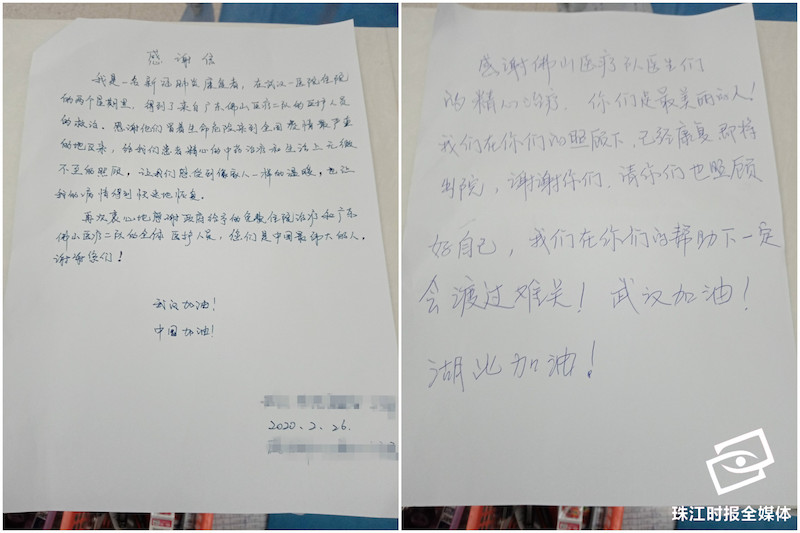 感谢信
我是一名新冠肺炎康复者，在武汉一医院住院
的两个星期里，得到了来自广东佛山医疗二队的医护人员
的救治。感谢他们冒着生命危险来到全国疫情最严重
的地区来，给我们患者精心的中药治疗和生活上无微
不至的照顾，让我们感受到像家人一样的温暖，也让
我的病情得到快速地恢复。
再次衷心地感谢政府给予的免费住院治疗和广东
佛山医疗二队的全体医护人员，您们是中国最伟大的人，
谢谢您们！
武汉加油！
中国加油！
2020.2.26.
感谢佛山医疗队医生们
的精心治疗，你们是最美丽的人！
我们在你们的照顾下，已经康复即将
出院，谢谢你们，请你们也照顾
好自己，我们在你们的帮助下一定
会渡过难关！武汉加油！
湖北加油！
珠江时报全媒体